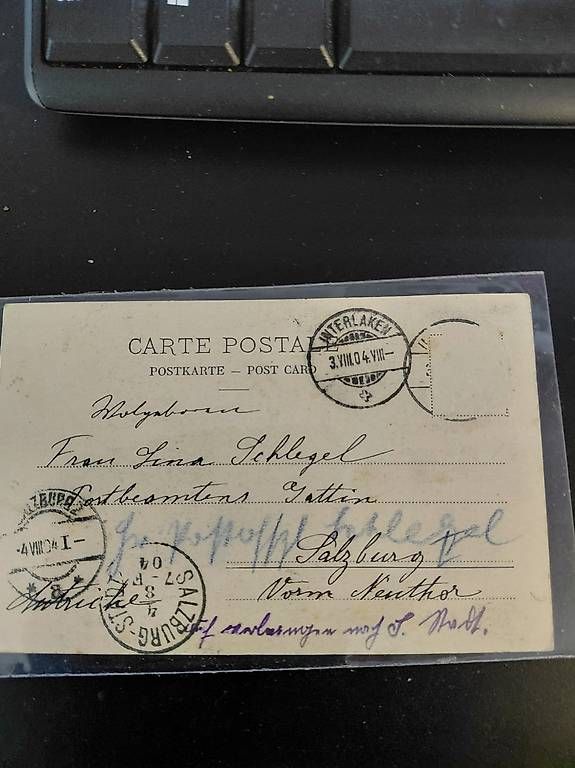 CARTE POSTALE
POSTKARTE — POST CARD
INTERLAKEN
3.VIII.04.VIII—
Wolgeboren
Frau Lina Schlegel
Postbeamtens Gattin
Salzburg
Vorm Neuthor
Autriche
Schlegel
SALZBURG 2
4.VIII.04 I—
SALZBURG-ST
4
8
7-F
04
nach S. Stadt.